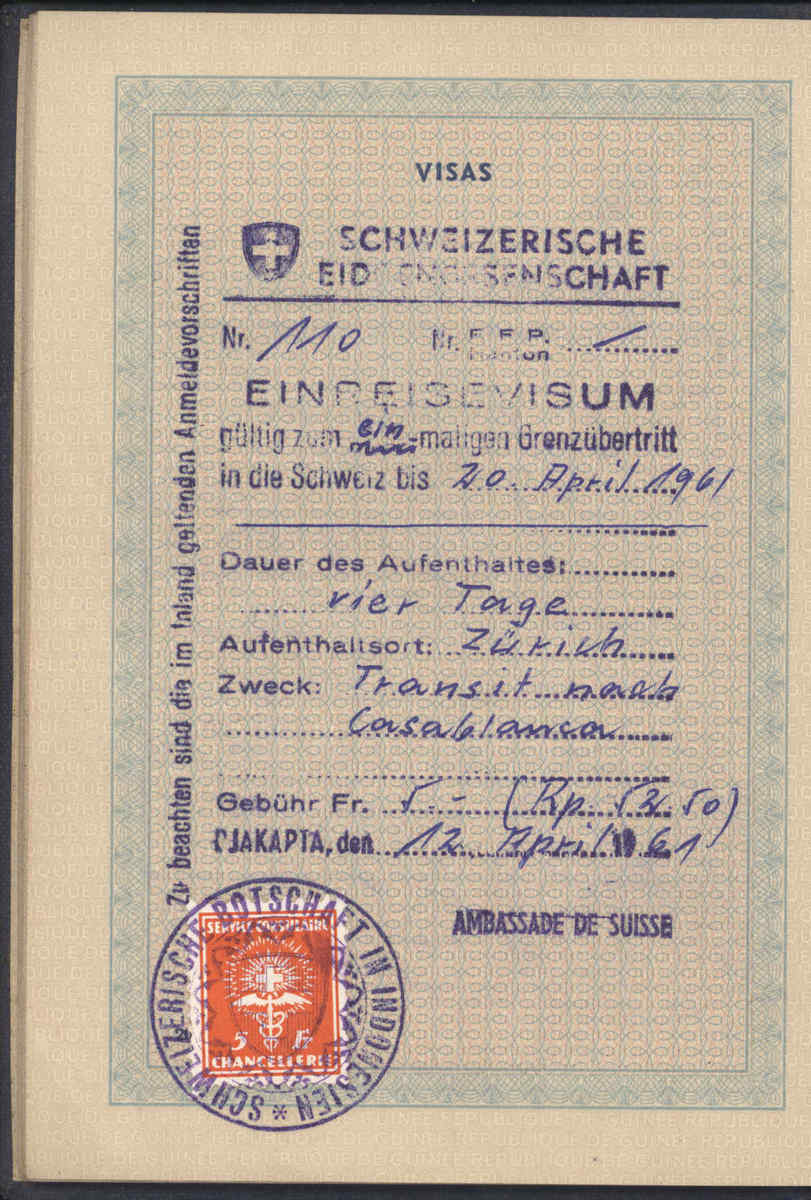 VISAS
SCHWEIZERISCHE
EIDGENOSSENSCHAFT
Nr. 110 Nr. F. F. P.
Kanton
EINREISEVISUM
gültig zum ein-maligen Grenzübertritt
in die Schweiz bis 20. April 1961
Dauer des Aufenthaltes:
vier Tage
Aufenthaltsort: Zürich
Zweck: Transit nach
Casablanca
Gebühr Fr. 5.- (Rp. 52.50)
DJAKARTA, den 12. April 1961
AMBASSADE DE SUISSE
Zu beachten sind die im Inland geltenden Anmeldevorschriften
SCHWEIZERISCHE BOTSCHAFT IN INDONESIEN *
SERVICE CONSULAIRE
5 Fr
CHANCELLERIE